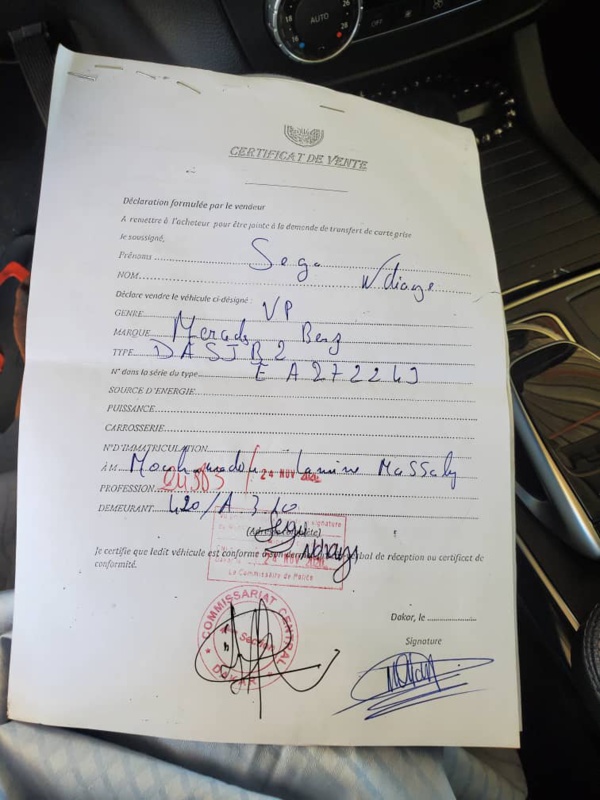 AUTO
OFF
CERTIFICAT DE VENTE
Déclaration formulée par le vendeur
A remettre à l'acheteur pour être jointe à la demande de transfert de carte grise
Je soussigné,
Prénoms Sega Ndiaye
NOM
Déclare vendre le véhicule ci-désigné :
GENRE VP
MARQUE Mercedes Benz
TYPE DASJB2
N° dans la série du type EA2722
SOURCE D'ENERGIE
PUISSANCE
CARROSSERIE
N°D'IMMATRICULATION
À M Lamine Massaly
PROFESSION 24 NOV
DEMEURANT 420/A
signature
Je certifie que ledit véhicule est conforme de réception ou certificat de
conformité.
24 NOV
Le Commissaire de Police
Dakar, le
Signature
COMMISSARIAT CENTRAL
Section
DAKAR